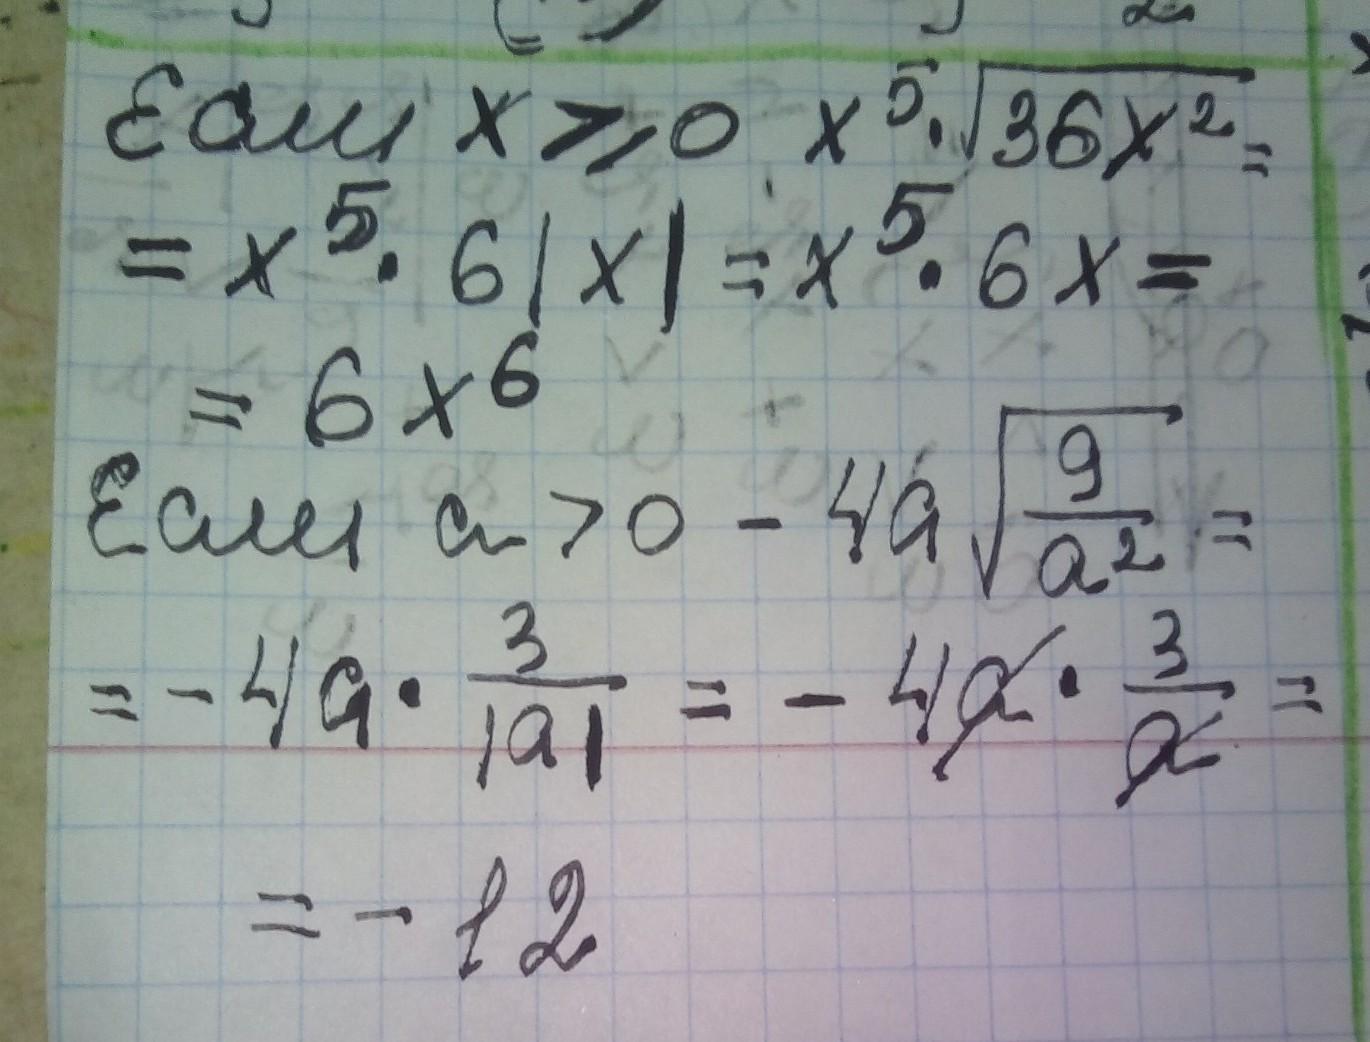 Если x ⩾ 0 x⁵·√(36x²) =
= x⁵·6|x| = x⁵·6x =
= 6x⁶
Если a > 0 - 4a√(9/a²) =
= - 4a · 3/|a| = - 4a · 3/a =
= - 12